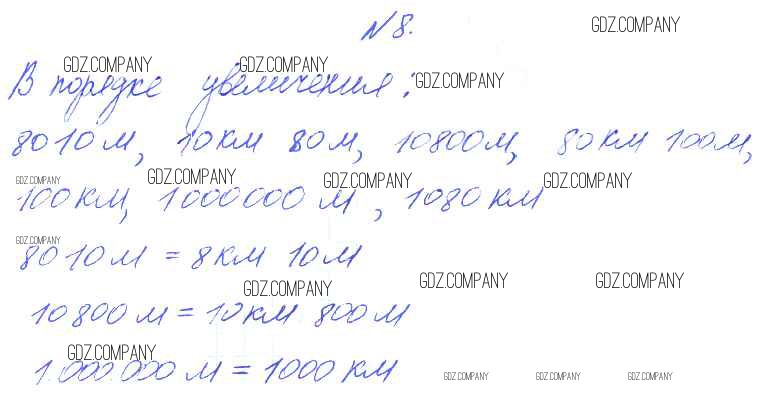 №8.
GDZ.COMPANY
GDZ.COMPANY GDZ.COMPANY
В порядке увеличения:
GDZ.COMPANY
8010 м, 10 км 80 м, 10800 м, 80 км 100 м,
GDZ.COMPANY GDZ.COMPANY GDZ.COMPANY GDZ.COMPANY
100 км, 1000000 м, 1080 км
GDZ.COMPANY
8010 м = 8 км 10 м
GDZ.COMPANY GDZ.COMPANY GDZ.COMPANY
10800 м = 10 км 800 м
GDZ.COMPANY
1.000.000 м = 1000 км
GDZ.COMPANY GDZ.COMPANY GDZ.COMPANY